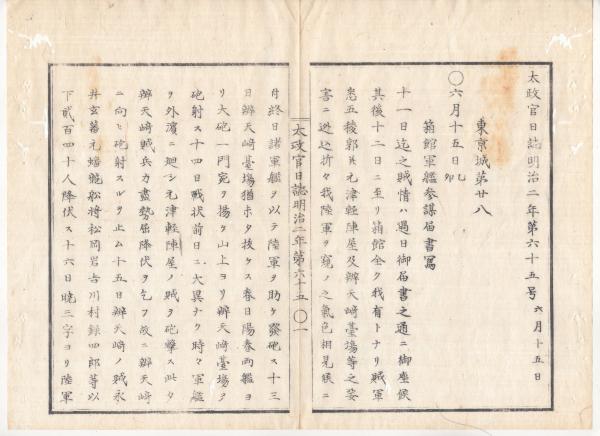 太政官日誌明治二年第六十五号
六月十五日
東京城第廿八
〇六月十五日乙卯
箱館軍艦参謀届書写
十一日迄之賊情ハ過日御届書之通ニ御座候
其後十二日ニ至リ箱館全ク我有トナリ賊軍
悉五稜郭幷元津軽陣屋及辨天崎臺場等之要
害ニ逃込折々我陸軍ヲ窺ノ之氣色相見候ニ
太政官日誌明治二年第六十五〇一
付終日諸軍艦ヲ以テ陸軍ヲ助ケ發砲ス十三
日辨天崎臺場猶ホタ抜ケス春日陽春両艦ヨ
リ大砲一門宛ヲ揚ケ山上ヨリ辨天崎臺場ヲ
砲射ス十四日戦状前日ニ大異ナク時々軍艦
ヲ外濱ニ廻シ元津輕陣屋ノ賊ヲ砲撃ス此夕
辨天崎賊兵力盡勢屈降伏ヲ乞フ故ニ辨天崎
ニ向ヒ砲射スルヲ止ム十五日辨天崎ノ賊永
井玄蕃元蟠龍船将松岡岩吉川村録四郎等以
下貳百四十人降伏ス十六日暁三字ヨリ陸軍